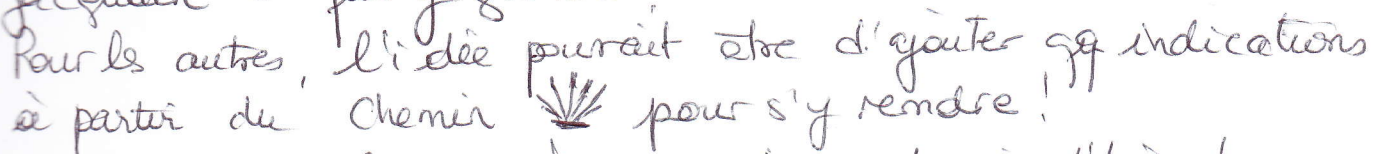 Pour les autres, l'idée pourrait être d'ajouter qq indications
à partir du Chemin pour s'y rendre !